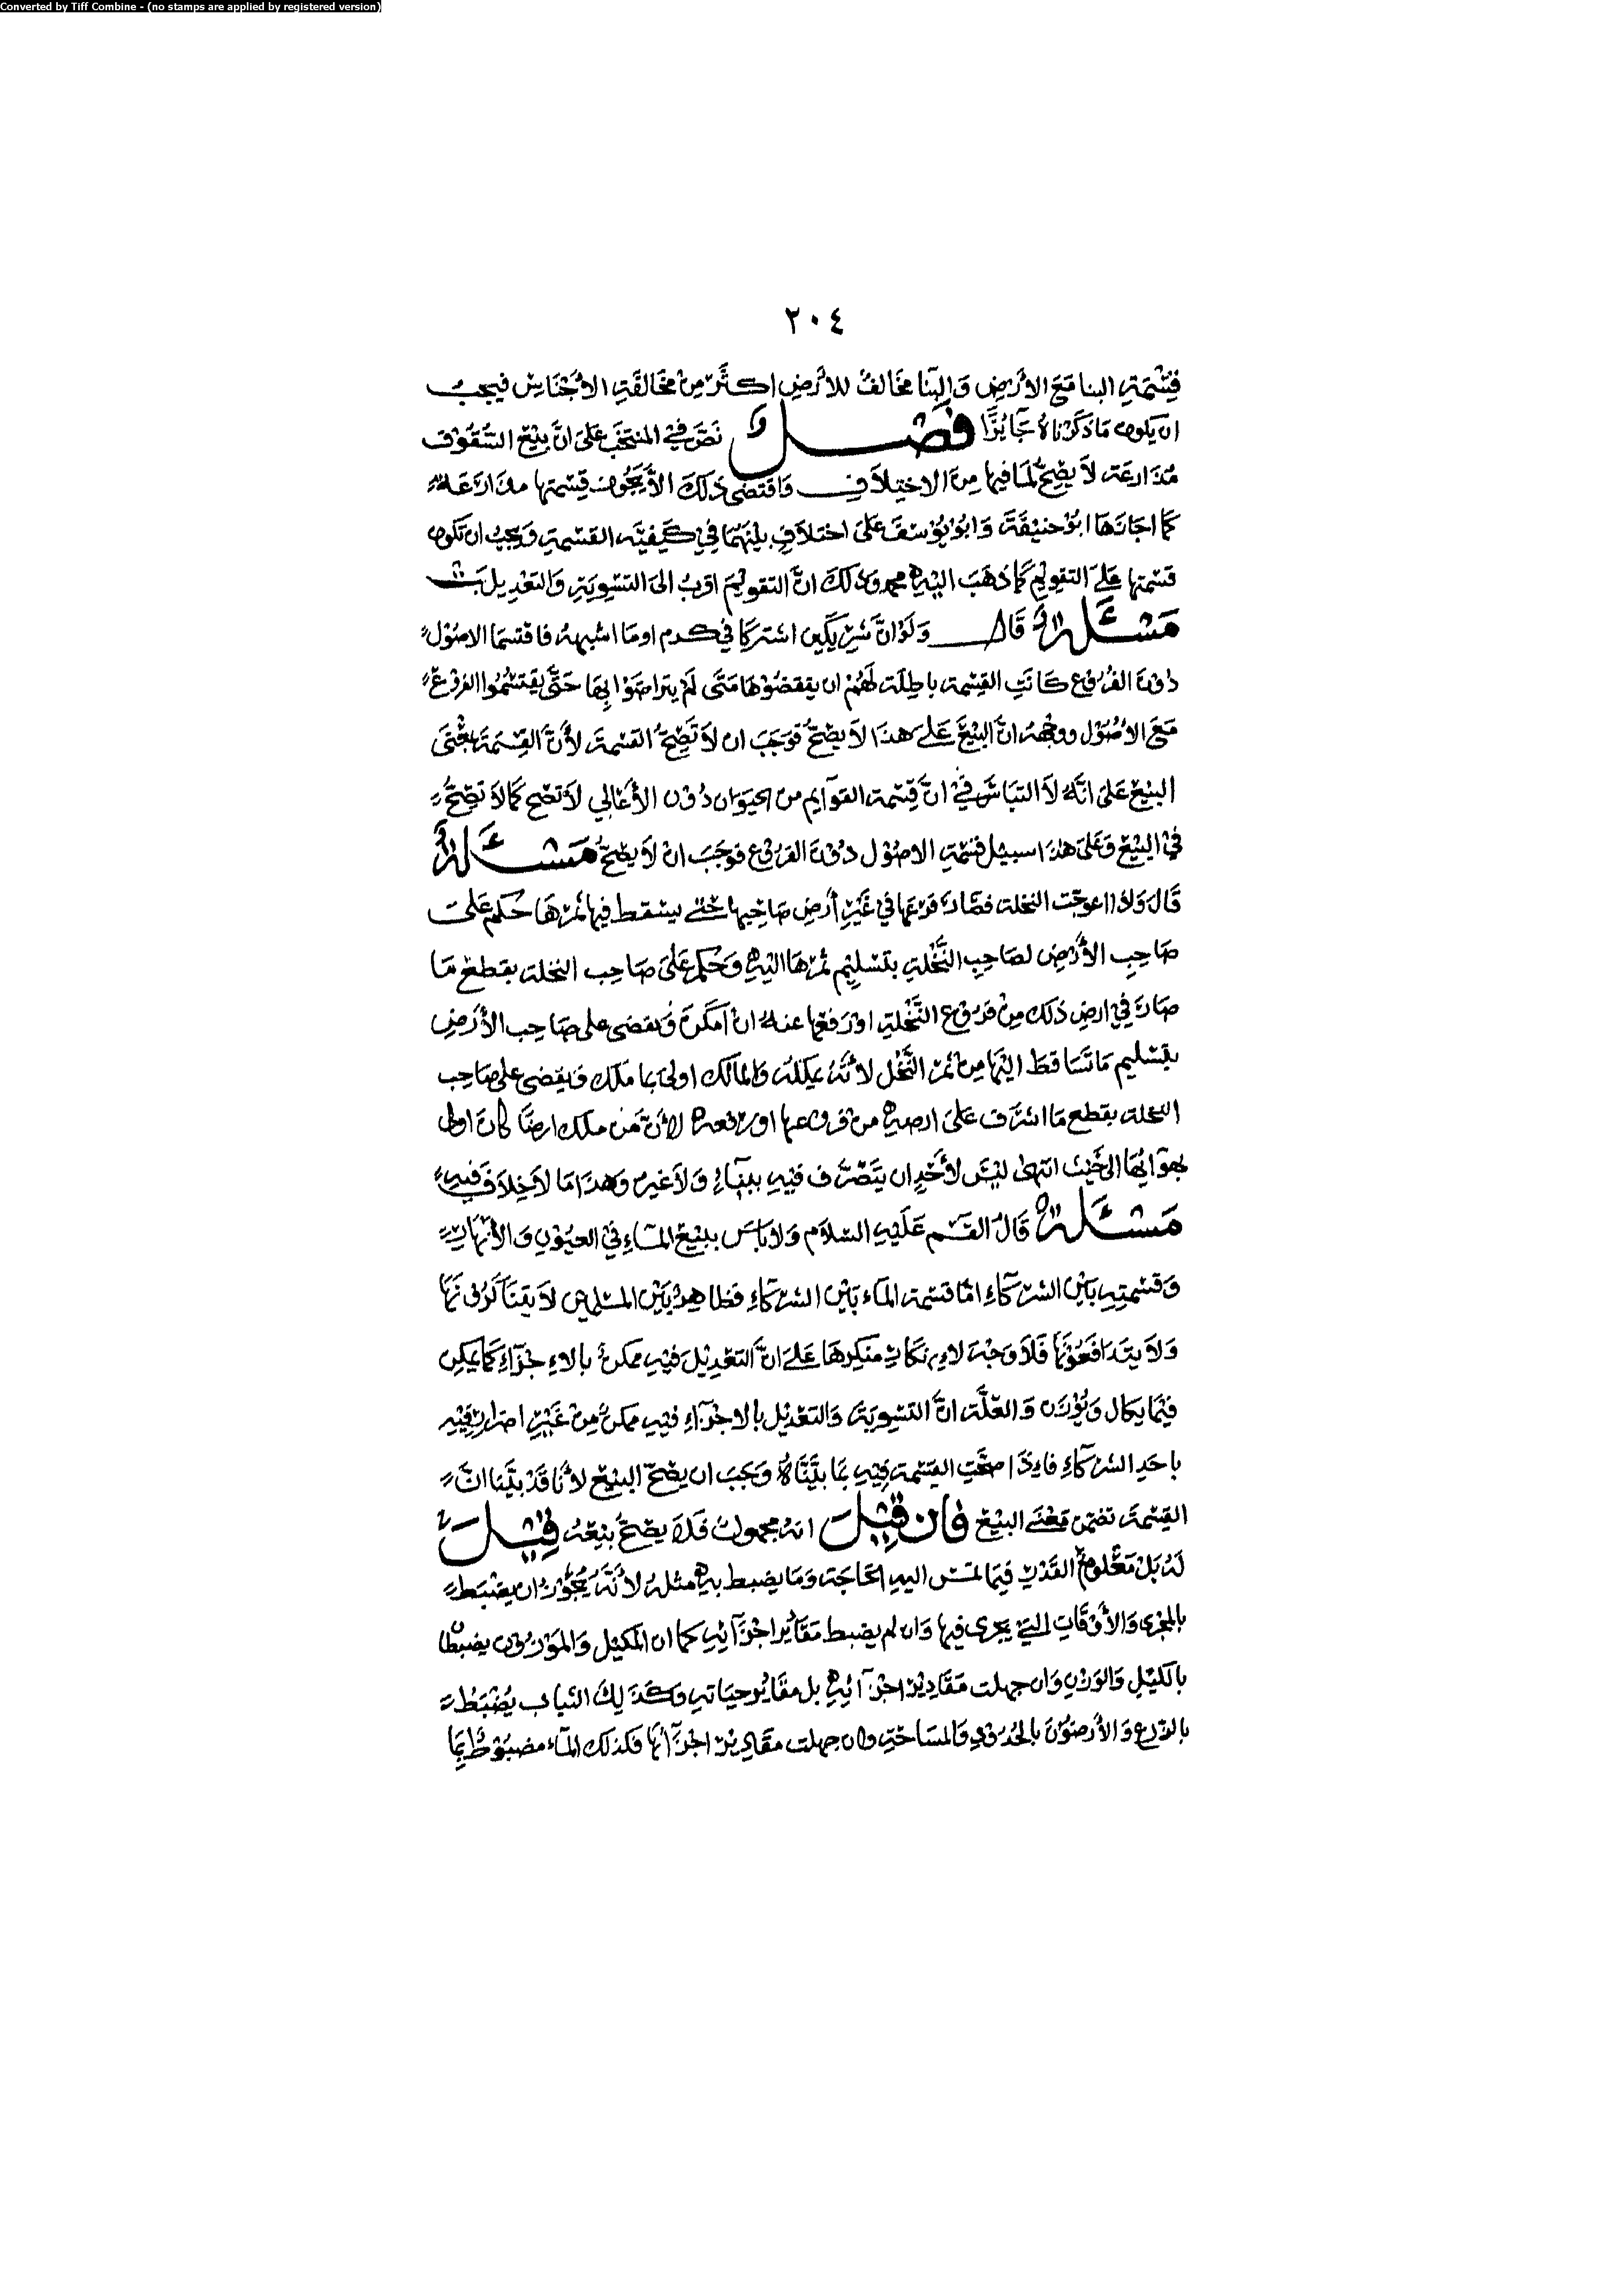 Converted by Tiff Combine - (no stamps are applied by registered version)
٢٠٤
قسْمَةِ البنا مَعَ الأرْضِ وَالبِنَا مخَالفٌ للأرْضِ اكثَرَ مِنْ مخَالَفَةِ الأجْنَاسِ فيجبُ
ان يكون مَا ذكَرْنَاهُ جَائزًا فَصْل وَ نَصَّ في المنتخَب عَلى انَّ بيْعَ السُّقُوْف
مُذَارعَة لاَ يصِحُّ لمَا فيها مِنَ الاختِلاَفِ وَاقتضَى ذَلكَ الاَّ يَجُوز قسْمتها مذارَعَة
كمَا اجَازَهَا ابُوْ حَنِيْفَةَ وَابُوْ يُوْسُفَ عَلىَ اختلاَفٍ بيْنَهُمَا فيْ كَيْفِيَّة القسْمةِ وَيجبُ ان تكون
قسْمتها عَلىَ التقويْمِ كمَا ذهَبَ اليْهِ محمد وذلكَ انَّ التقويْمَ اقربُ الى التسْوِيَةِ وَالتعْدِيل
مَسْئَلَةٌ قَال وَلَوْ انَّ شرِيْكَيْن اشتركا في كرم اومَا اشبههُ فاقتسمَا الاصُوْل
دُوْنَ الفُرُوْع كَانتِ القِسْمة باطلة لهُمْ ان ينقضُوْهَا مَتَى لَمْ يتراضَوْا بِهَا حَتَّى يقتسْمُوا الفرُوْعَ
مَعَ الأصُوْل ووجْههُ انَّ البيْعَ عَلىَ هذا لاَ يصحُّ فوَجَبَ ان لاَ تَصِحَّ القسْمةَ لأنَّ القِسْمَةَ بمَعْنَى
البيْع عَلى انَّهُ لاَ التبَاسَ فيْ انَّ قِسْمة القوَايم من الحيَوَان دُوْن الأعَالي لاَ تصح كمَا لاَ تصِحُّ
في البيْع وَعَلىَ هذا سبيْل قسْمةِ الاصُوْل دُوْنَ الفرُوْع فوَجَبَ انْ لاَ يصِحَّ مَسْئَلَةٌ
قَالَ وَاذا اعوجّت النخلة فصَارَ فرْعهَا في غَيْرِ أرْضِ صَاحِبِهَا حَتَّى يسْقط فيها ثمرهَا حُكم عَلىَ
صَاحِبِ الأرْضِ لصَاحِبِ النَّخْلةِ بتسْليْمِ ثمرهَا اليْهِ وَحُكم عَلىَ صَاحِب النخلة بقطْعِ مَا
صَارَ في ارضِ ذلك مِنْ فرُوْع النَّخْلةِ اوْ رَفعِهَا عنهُ انْ امْكَنَ وَيقضى على صَاحِب الأرْضِ
بتسْليم مَا تسَاقط اليْهَا مِنْ ثمر النَّخْل لأنَّهُ يملكهُ وَالمالك اولى بما ملك وَيقضى على صَاحِب
النخلة بقطع مَا اشرَف عَلىَ ارضِهِ منْ فروعها اوْ رفعهِ لأنَّ مَن ملك ارضًا كانَ اولى
بهوَائهَا الى حَيْثُ انتهى ليْسَ لأحَدٍ ان يتَصَرَّف فيْهِ ببنَاءٍ وَلاَ غيره وَهذا مَا لاَ خِلاَفَ فيْهِ
مَسْئَلَةٌ قَالَ القسم عَلَيْهِ السَّلاَم وَلاَ باسَ ببيْعِ المَاءِ في العيُوْنِ وَالأنهَارِ
وَقسْمتِهِ بَيْن الشرَكَآءِ امَّا قسْمة المآء بَيْن الشرَكآءِ فظاهِرٌ بَيْن المسْلمين لاَ يتنَاكَرُوْنَهَا
وَلاَ يتدَافعُوْنهَا فَلاَ وَجْهَ لاِءنكَارِ منكِرهَا عَلىَ انَّ التعْدِيْلَ فيْهِ ممكنٌ بالاجْزَآءِ كمَا يمْكِن
فيْمَا يكال وَيُوْزَن وَالعلَّة انَّ التسْوِيَةَ وَالتعْدِيْل بالاجْزآءِ فيْهِ ممكنٌ مِنْ غَيْرِ اضرَارٍ فيْهِ
باحَدِ الشرَكَآءِ فاءِذَا صَحَّتِ القِسْمة فيْهِ بمَا بيَّنَّاهُ وَجَبَ ان يصِحَّ البيْع لأنَّا قَدْ بيَّنا انَّ
القِسْمَةَ تضمن مَعْنَى البيْع فَان قِيْلَ انهُ مجهولٌ فَلاَ يصِحُّ بيْعُهُ قِيْلَ
لَهُ بَلْ مَعْلُومُ القَدْرِ فيْمَا تمسّ اليهِ الحَاجَة وَمَا يضبط بهِ مثلهُ لأنَّهُ يَجُوْزُ ان يضْبَط
بالمجْرى وَالأوْقَاتِ التيْ يجرى فيها وَان لم يضبط مَقَادير اجْزَآئِهِ كما ان المكيْل وَالموْزُوْن يضبطان
بالكيْلِ وَالوَزْنِ وَان جهلت مَقَادِيْر اجْزَآئِهِ بل مقَادير حبَّاتهِ وَكذَلِكَ الثيَاب يُضْبَطُ
بالذرْعِ وَالأرْضوْنَ بالحدُوْدِ وَالمسَاحَةِ وان جهلت مقَادِيْر اجْزَآئهَا فكذلك المآء مضبُوْطٌ بمَا